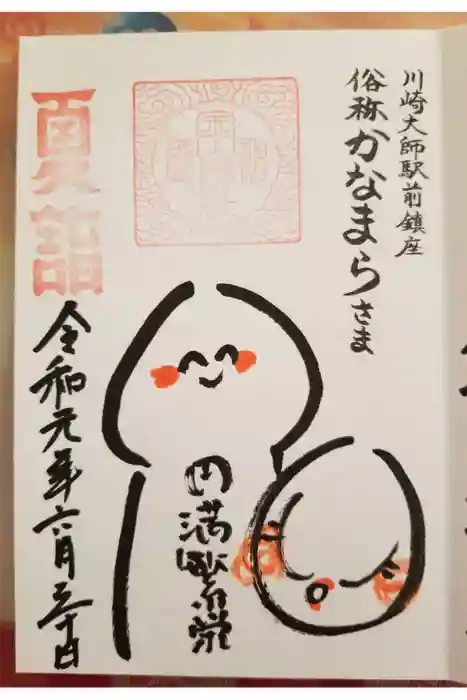 川崎大師駅前鎮座
俗称かなまらさま
円満
夏詣
令和元年六月三十日